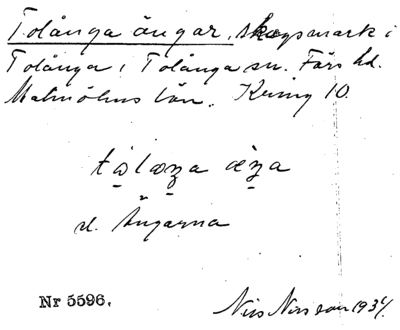 Tolånga ängar, skogsmark i
Tolånga i Tolånga sn. Färs hd.
Malmöhus län. Kring 10.
el. Ängarna
Nr 5596.
Nils Nilsson 1934.